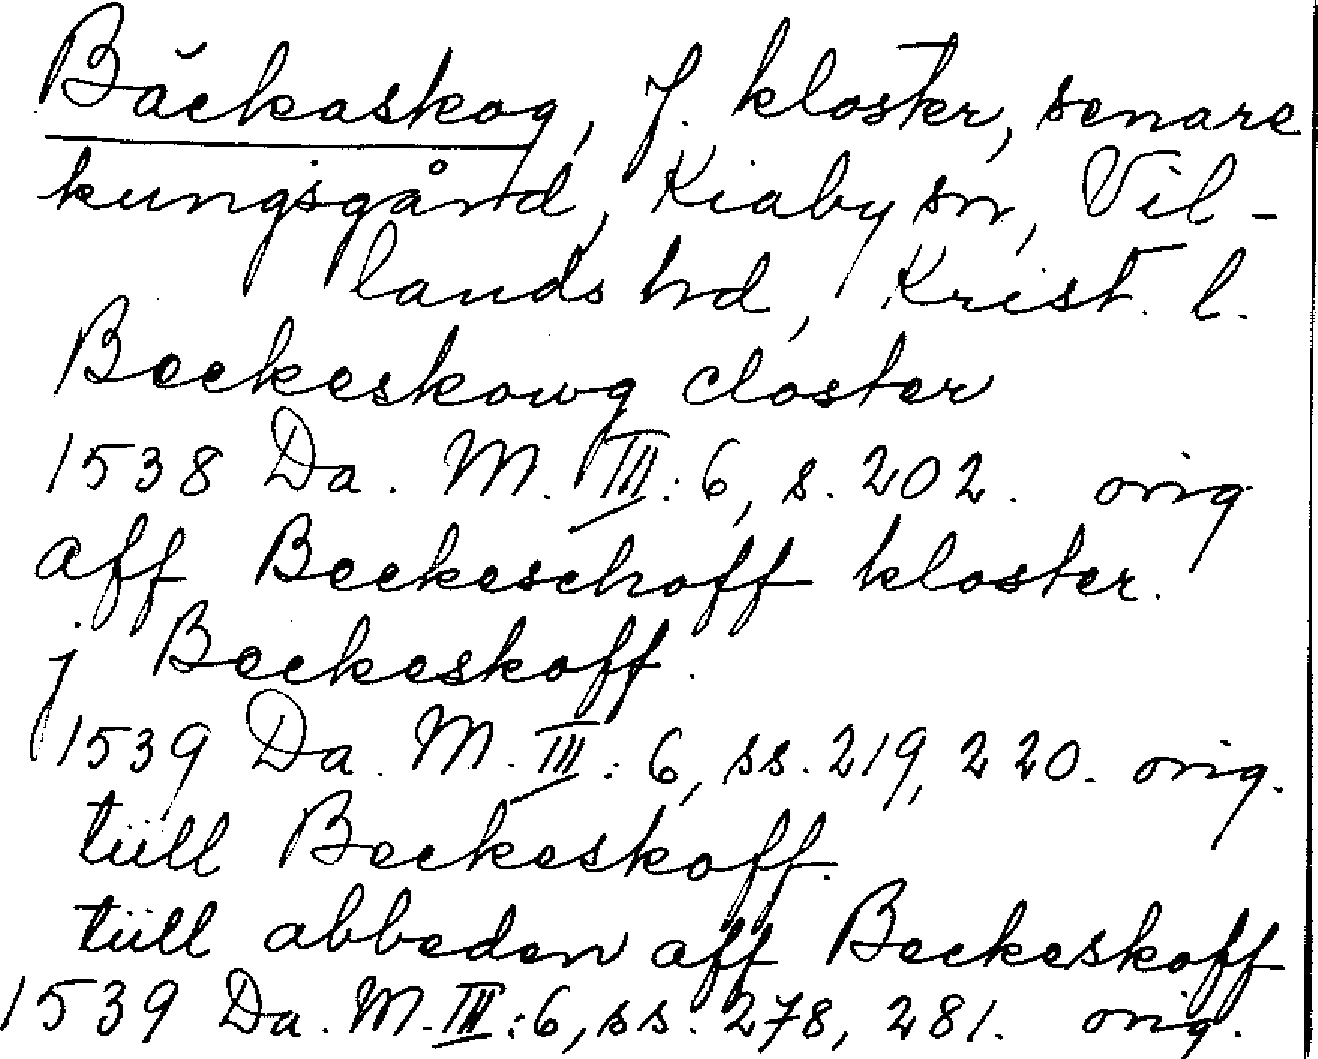 Bäckaskog, f. kloster, senare
kungsgård, Kiaby sn, Vil-
lands hd, Krist. l.
Beckeskowg closter
1538 Da. M. III:6, s. 202. orig
aff Beckeschoff kloster.
j Beckeskoff.
1539 Da. M. III:6, ss. 219, 220. orig.
tüll Beckeskoff.
tüll abbeden aff Beckeskoff
1539 Da. M. III:6, ss. 278, 281. orig.